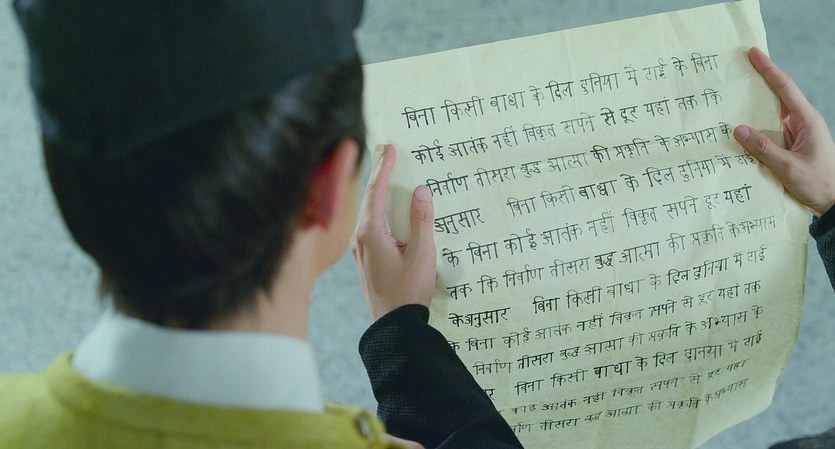 बिना किसी बाधा के दिल दुनिया में टाई के बिना
कोई आतंक नहीं विकृत सपने से दूर यहां तक कि
निर्वाण तीसरा बुद्ध आत्मा की प्रकृति के अभ्यास के
अनुसार बिना किसी बाधा के दिल दुनिया में टाई
के बिना कोई आतंक नहीं विकृत सपने दूर यहां
तक कि निर्वाण तीसरा बुद्ध आत्मा की प्रकृति के अभ्यास
के अनुसार बिना किसी बाधा के दिल दुनिया में टाई
के बिना कोई आतंक नहीं विकृत सपने से दूर यहां तक
निर्वाण तीसरा बुद्ध आत्मा की प्रकृति के अभ्यास के
बिना किसी बाधा के दिल दुनिया में टाई
कोई आतंक नहीं विकृत सपने से दूर यहां
तीसरा बुद्ध आत्मा की प्रकृति के अभ्यास